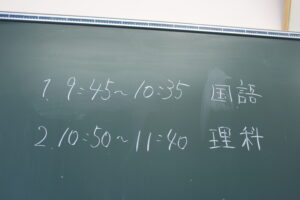 1. 9:45~10:35 国語
2. 10:50~11:40 理科